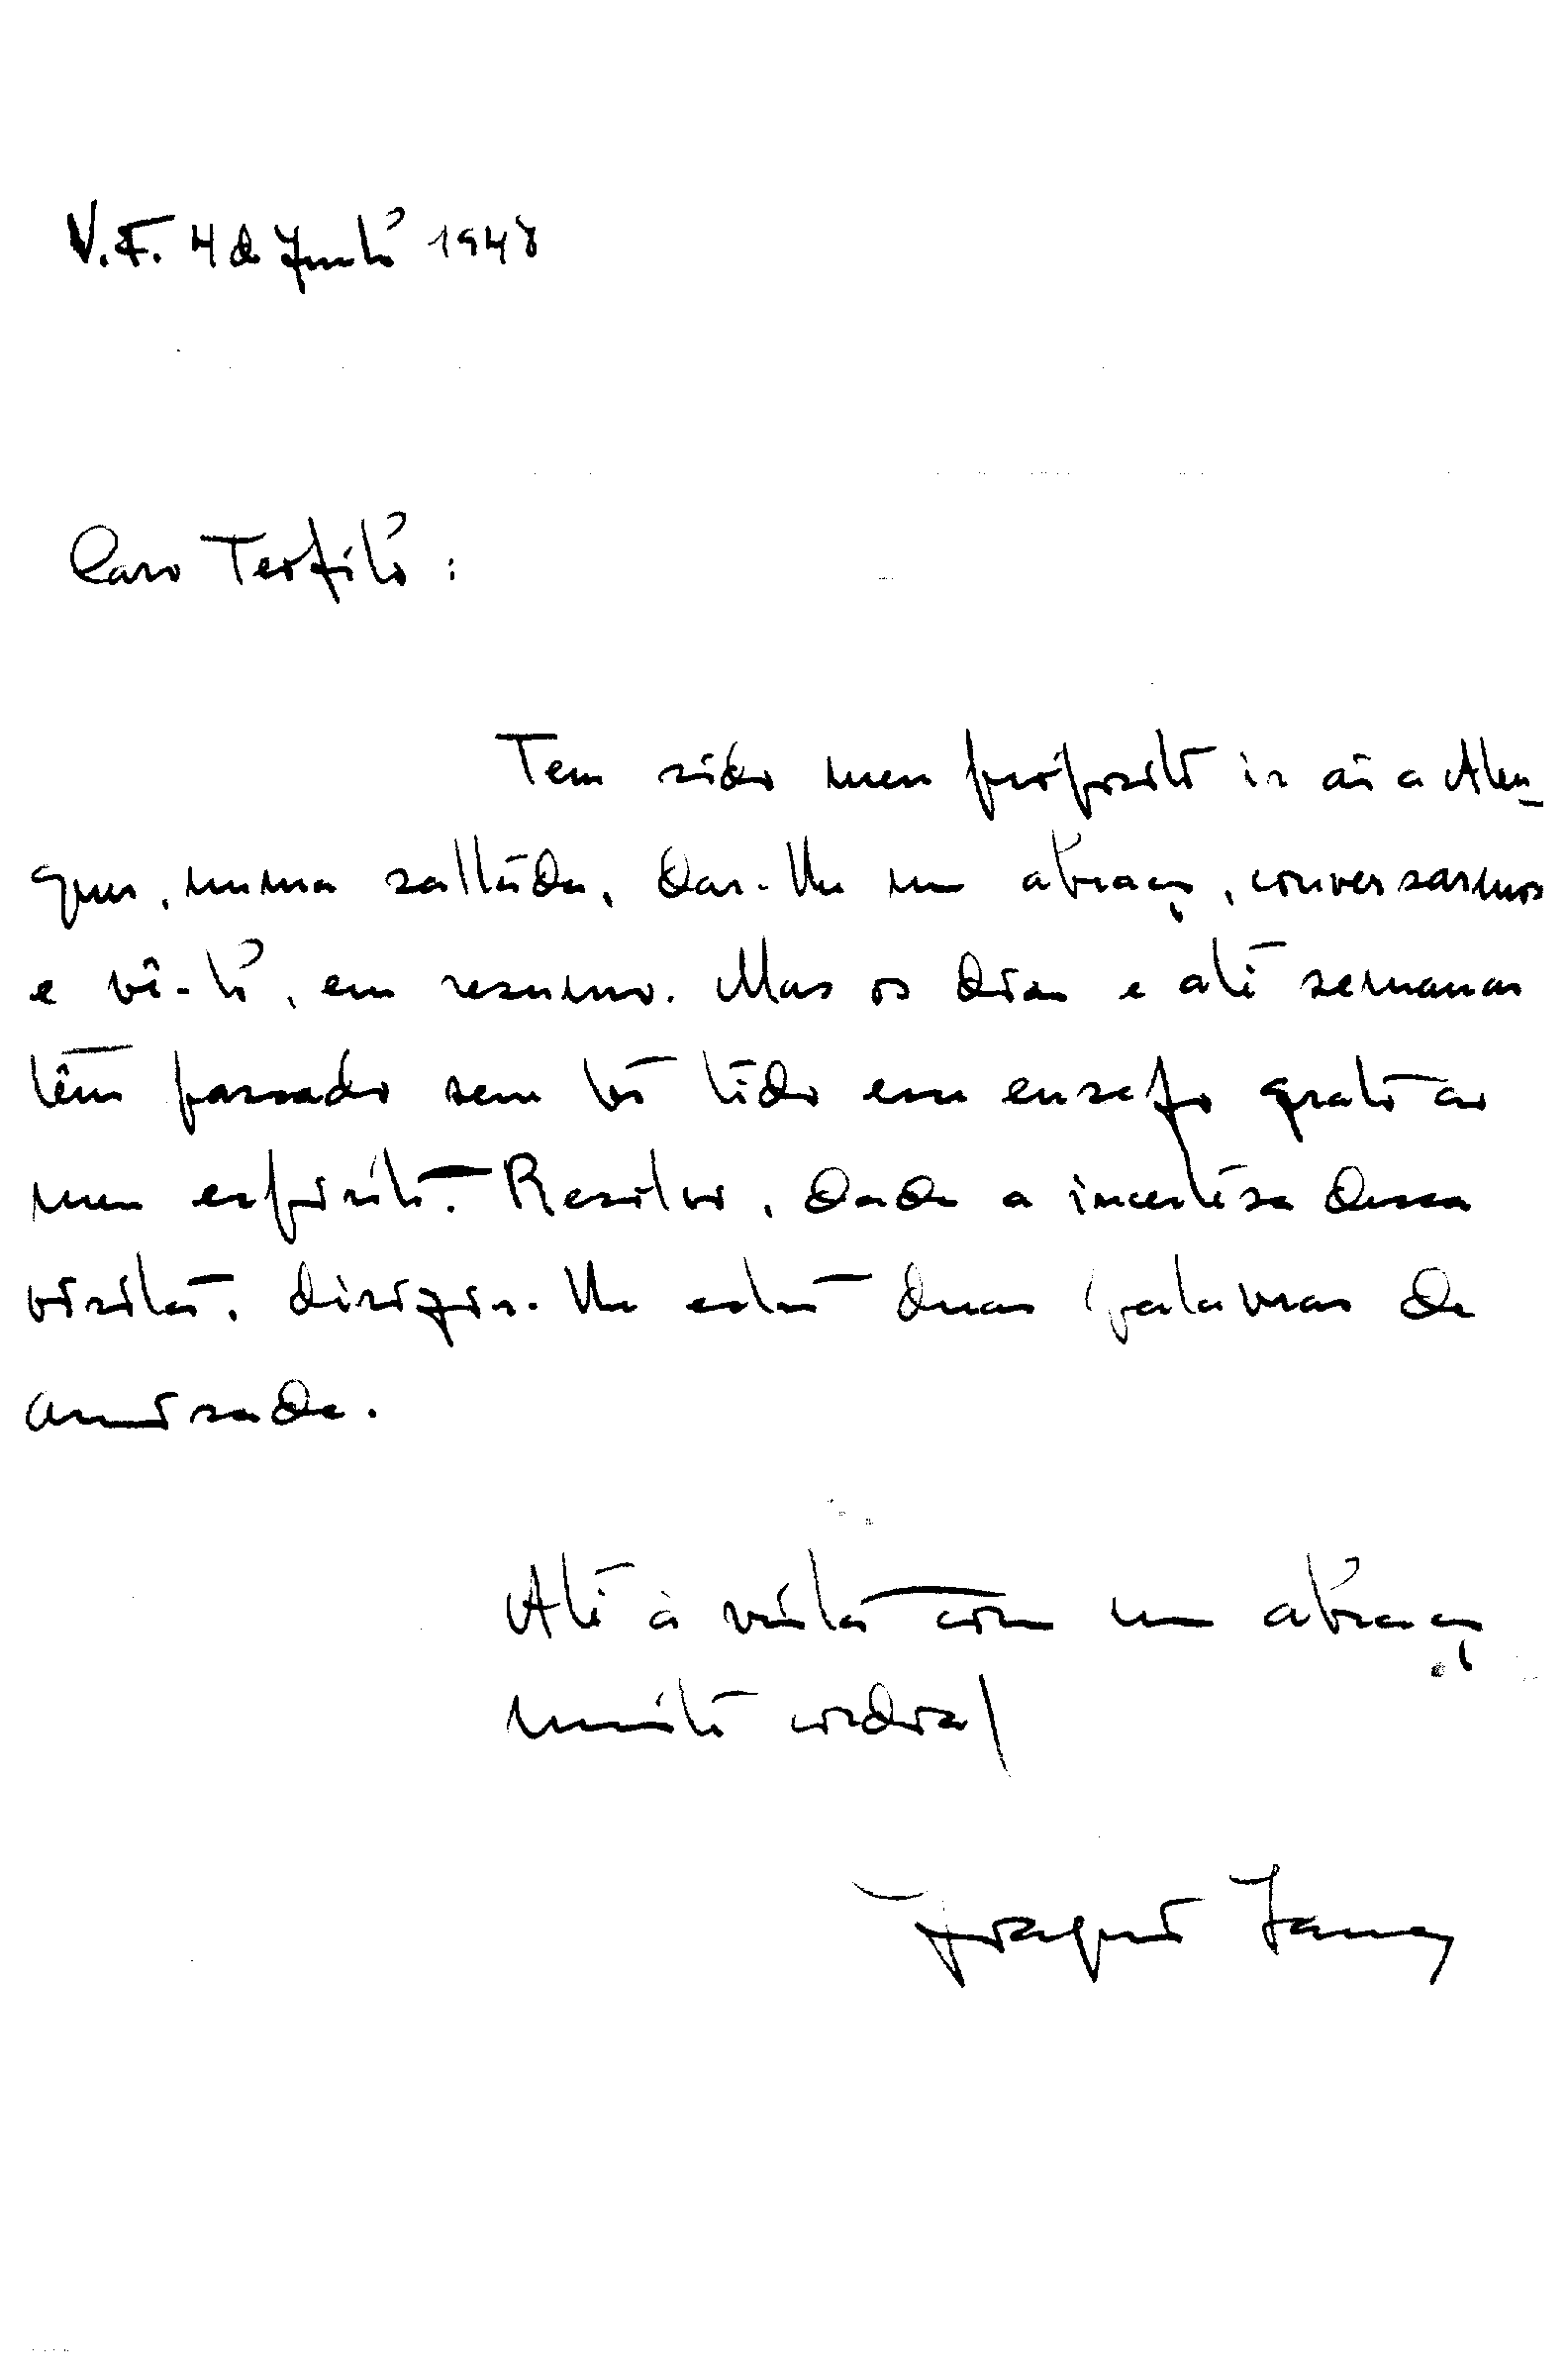 V. F. 4 de Junho 1948
Caro Teófilo:
Tem sido meu propósito ir aí a Alen-
quer, numa saltada, dar-lhe um abraço, conversarmos
e vê-lo, em resumo. Mas os dias e até semanas
têm passado sem ter tido esse ensejo grato ao
meu espírito. Resolvi, dada a incertêsa dessa
visita, dirigir-lhe estas duas palavras de
amisade.
Até à vista com um abraço
muito cordial